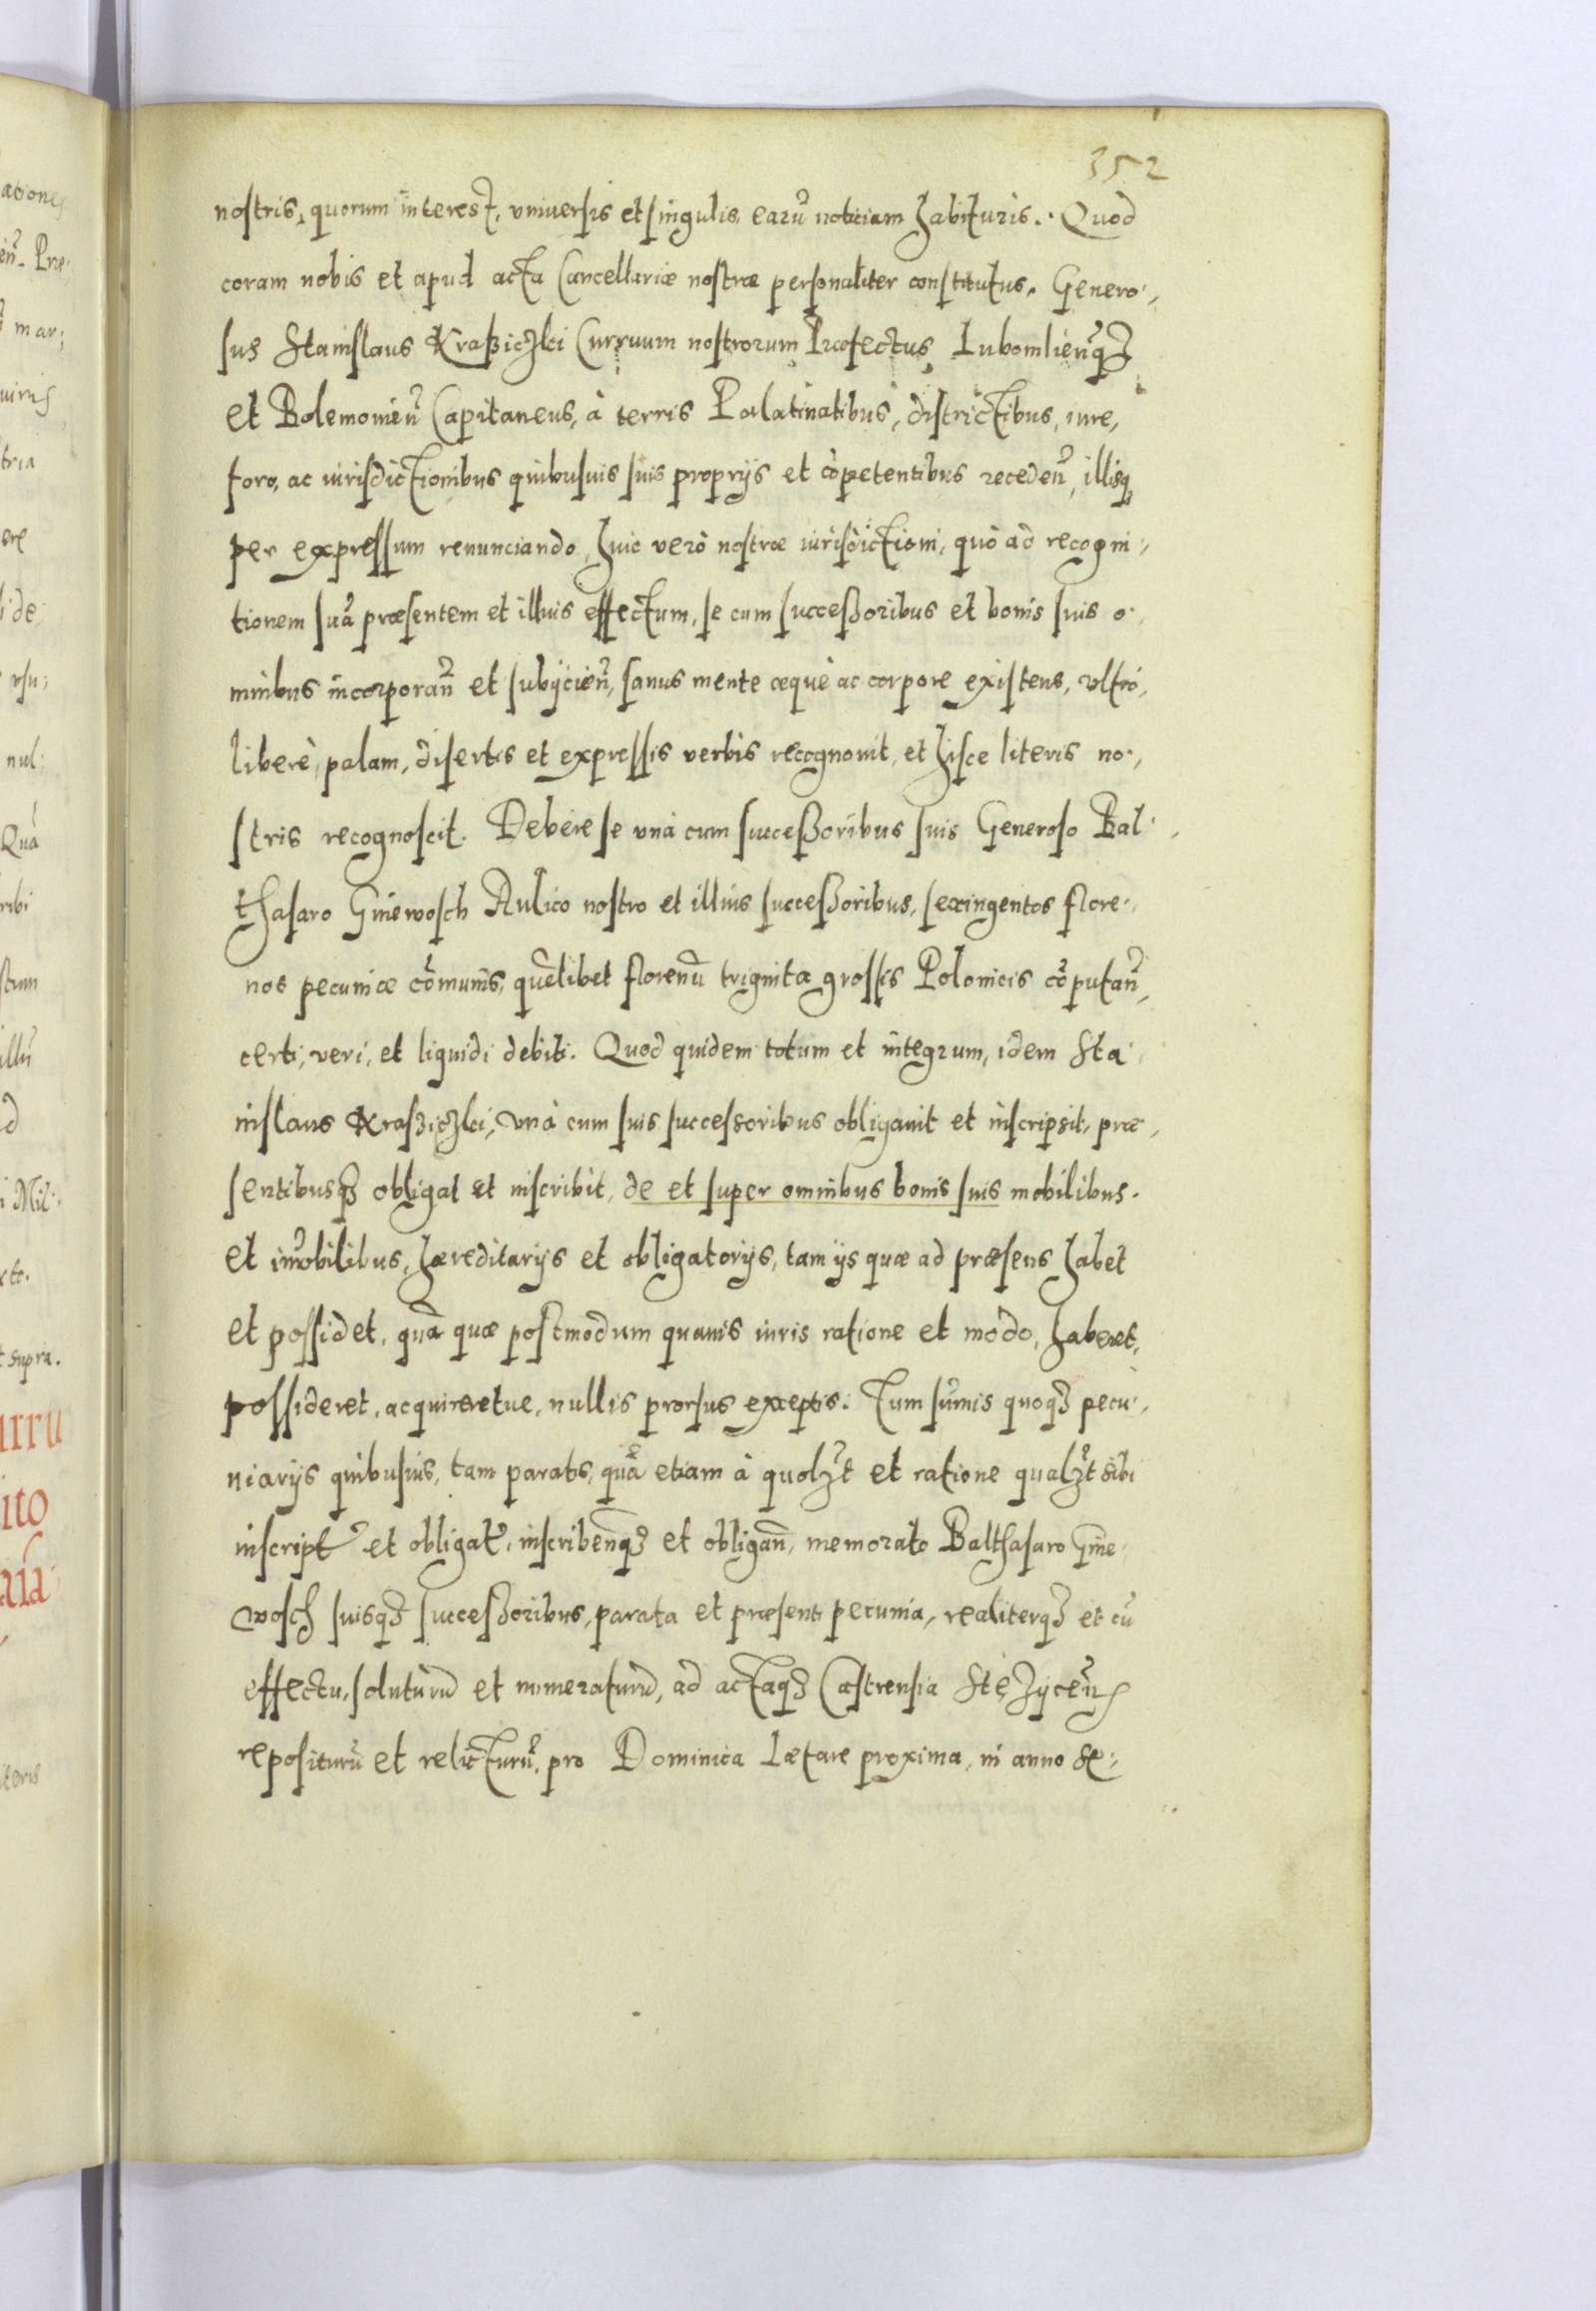 352
nostris, quorum interest, vniuersis et singulis, earũ noticiam habituris. Quod
coram nobis et apud acta Cancellariæ nostræ personaliter constitutus. Genero-
sus Stanislaus Kraßiczki Curruum nostrorum Præfectus, Lubomlieñq3
et Bolemouieñ Capitaneus, à terris Palatinatibus, districtibus, iure,
foro, ac iurisdictionibus quibusuis suis proprijs et cõpetentibus recedeñ, illisq3
per expressum renunciando, huic verò nostræ iurisdictioni, quò ad recogni-
tionem suã præsentem et illius effectum, se cum successoribus et bonis suis o-
mnibus incorporañ et subijcieñ, sanus mente æquè ac corpore existens, vltrò,
liberè, palam, disertis et expressis verbis recognouit, et hisce literis no-
stris recognoscit. Debere se vnà cum successoribus suis Generoso Bal-
thasaro Gniewosch Aulico nostro et illius successoribus, sexingentos flore-
nos pecuniæ cõmunis, quẽlibet florenũ triginta grossis Polonicis cõputañ,
certi, veri, et liquidi debiti. Quod quidem totum et integrum, idem Sta-
nislaus Kraßiczki, vnà cum suis successoribus obligauit et inscripsit, præ-
sentibusq3 obligat et inscribit, de et super omnibus bonis suis mobilibus.
et im̃obilibus, hæreditarijs et obligatorijs, tam ijs quæ ad præsens habet
et possidet, quã quæ postmodum quauis iuris ratione et modo, haberet,
possideret, acquireretue, nullis prorsus exceptis. Tum sum̃is quoq3 pecu-
niarijs quibusuis, tam paratis, quã etiam à quolz̃t et ratione qualz̃t sibi
inscript̃ et obligat̃, inscribeñq3 et obligañ, memorato Balthasaro Gnie-
wosch suisq3 successoribus, parata et præsenti pecunia, realiterq3 et cũ
effectu, soluturũ et numeraturũ, ad actaq3 Castrensia Stezyceñs
repositurũ et relicturũ, pro Dominica Lætare proxima, in anno se-